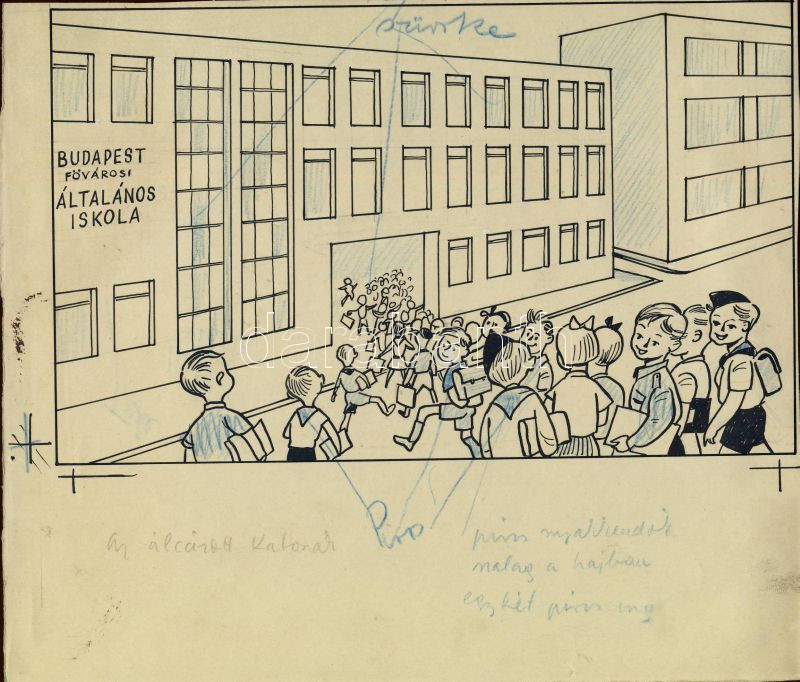 szürke
BUDAPEST
FŐVÁROSI
ÁLTALÁNOS
ISKOLA
darabanth
Az álcázott katonák
Piros
piros nyakkendők
szalag a hajban
egy két piros ing